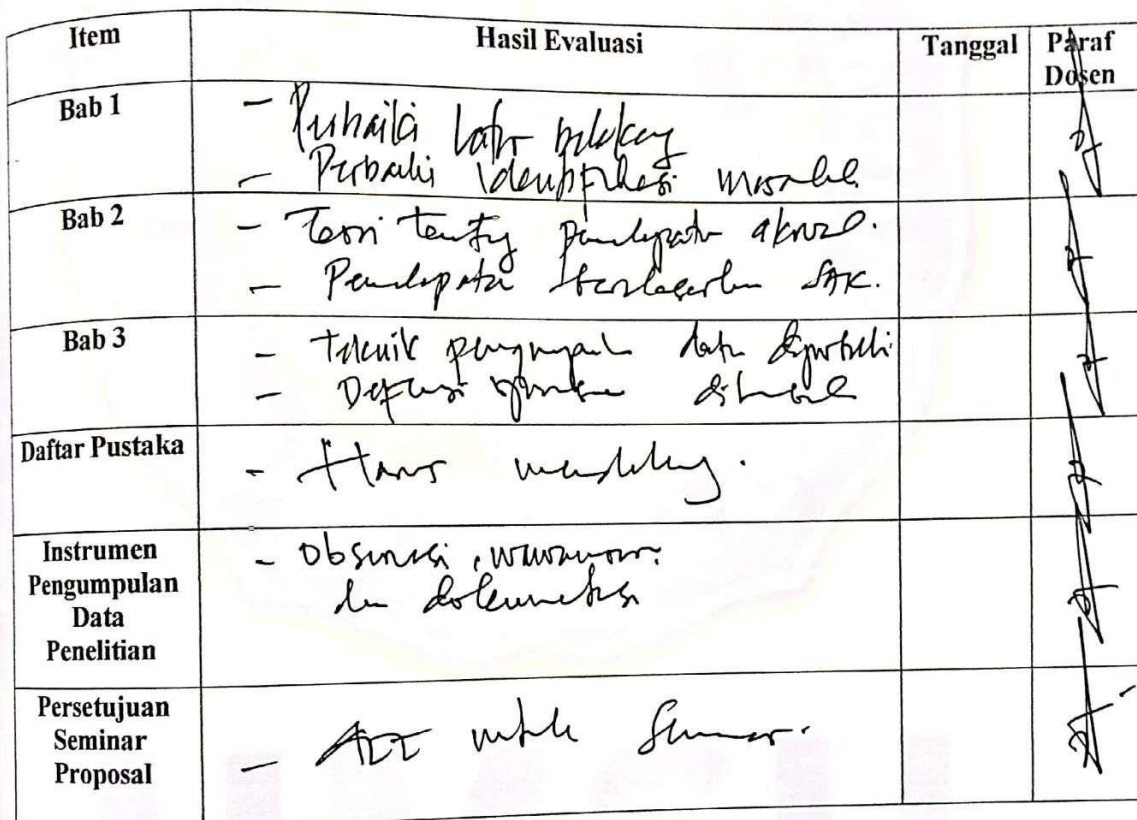 Item Hasil Evaluasi Tanggal Paraf Dosen
Bab 1
- Perbaiki latar belakang
- Perbaiki identifikasi masalah.
Bab 2
- Teori tentang pendapatan akrual.
- Pendapatan berdasarkan SAK.
Bab 3
- Teknik pengumpulan data diperbaiki
- Definisi
Daftar Pustaka
- Harus mendeley.
Instrumen Pengumpulan Data Penelitian
- Observasi, wawancara
dan dokumentasi
Persetujuan Seminar Proposal
- ACC untuk Seminar.